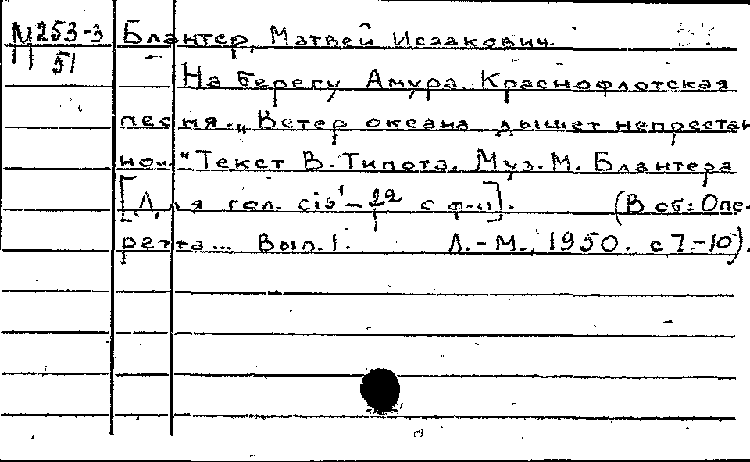 М 253-3 Блантер, Матвей Исаакович.
51
На берегу Амура. Краснофлотская
песня. „Ветер океана дышет непрестан
но..." Текст В. Типота. Муз. М. Блантера
[Для гол. cis¹- с ф-п].  (В сб: Опе-
ретта... Вып. 1.  Л.-М., 1950. с 7-10).